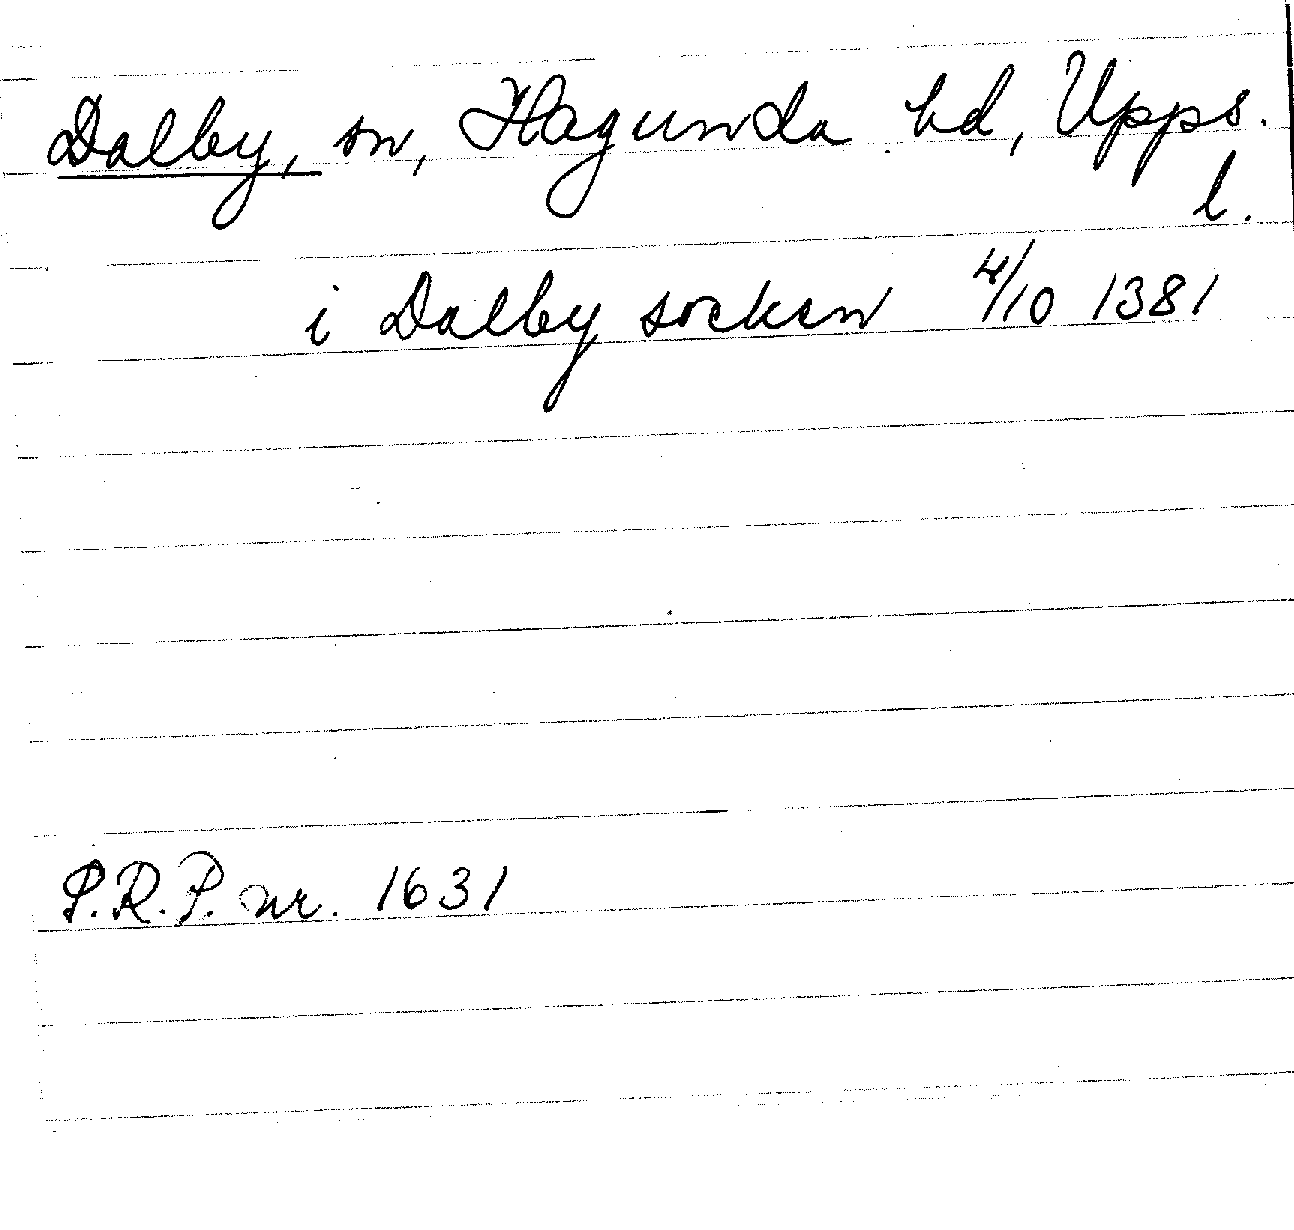 Dalby, sn, Hagunda hd, Upps.
l.
i Dalby socken 4/10 1381
S.R.P. nr. 1631